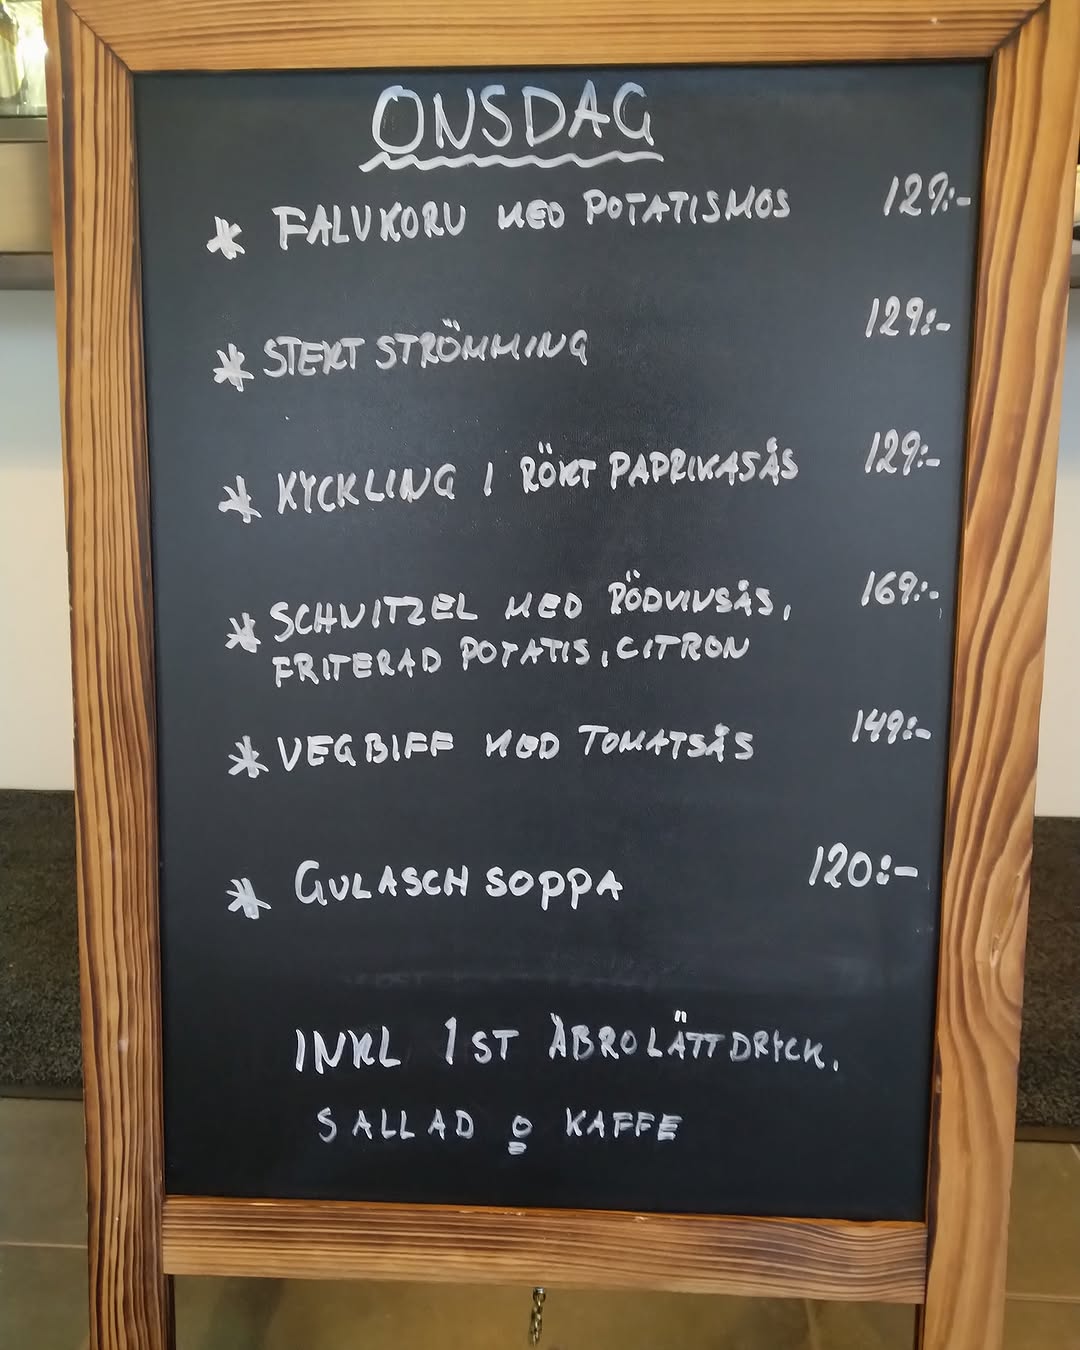 ONSDAG
* FALUKORV MED POTATISMOS 129:-
* STEKT STRÖMMING 129:-
* KYCKLING I RÖKT PAPRIKASÅS 129:-
* SCHNITZEL MED RÖDVINSÅS, 169:-
FRITERAD POTATIS, CITRON
* VEGBIFF MED TOMATSÅS 149:-
* GULASCHSOPPA 120:-
INKL 1ST ÅBRO LÄTTDRYCK,
SALLAD o KAFFE